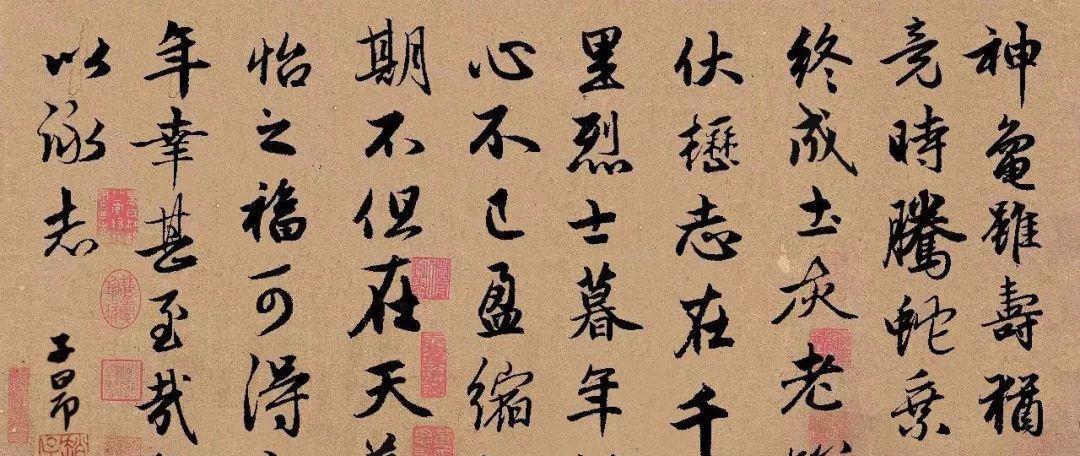 神龜雖壽猶
竟時騰蛇乗
終成土灰老
伏櫪志在千
里烈士暮年
心不已盈縮
期不但在天
怡之福可得
年幸甚至哉
以詠志
子昂